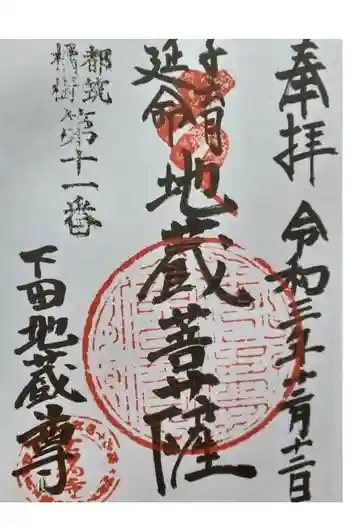 奉拝
令和三年十二月十二日
子育
延命
地蔵菩薩
都筑
橘樹
第十一番
下田地蔵尊